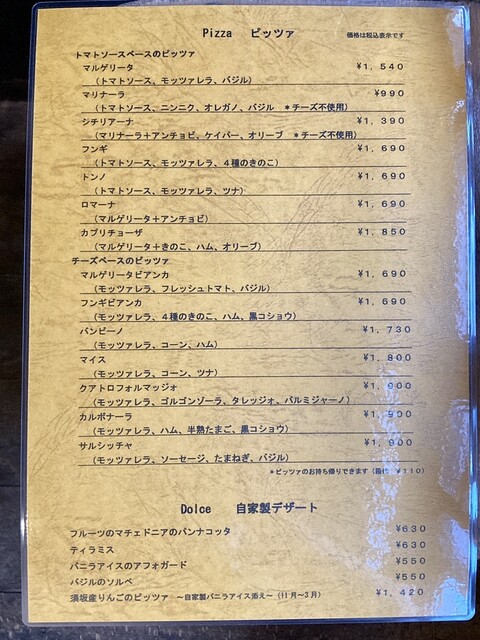 Pizza ピッツァ 価格は税込表示です
トマトソースベースのピッツァ
マルゲリータ ¥1,540
(トマトソース、モッツァレラ、バジル)
マリナーラ ¥990
(トマトソース、ニンニク、オレガノ、バジル *チーズ不使用)
シチリアーナ ¥1,390
(マリナーラ+アンチョビ、ケイパー、オリーブ *チーズ不使用)
フンギ ¥1,690
(トマトソース、モッツァレラ、4種のきのこ)
トンノ ¥1,690
(トマトソース、モッツァレラ、ツナ)
ロマーナ ¥1,690
(マルゲリータ+アンチョビ)
カプリチョーザ ¥1,850
(マルゲリータ+きのこ、ハム、オリーブ)
チーズベースのピッツァ
マルゲリータビアンカ ¥1,690
(モッツァレラ、フレッシュトマト、バジル)
フンギビアンカ ¥1,690
(モッツァレラ、4種のきのこ、ハム、黒コショウ)
バンビーノ ¥1,730
(モッツァレラ、コーン、ハム)
マイス ¥1,800
(モッツァレラ、コーン、ツナ)
クアトロフォルマッジォ ¥1,900
(モッツァレラ、ゴルゴンゾーラ、タレッジォ、パルミジャーノ)
カルボナーラ ¥1,900
(モッツァレラ、ハム、半熟たまご、黒コショウ)
サルシッチャ ¥1,900
(モッツァレラ、ソーセージ、たまねぎ、バジル)
*ピッツァのお持ち帰りできます(箱代 ¥110)
Dolce 自家製デザート
フルーツのマチェドニアのパンナコッタ ¥630
ティラミス ¥630
バニラアイスのアフォガード ¥550
バジルのソルベ ¥550
須坂産りんごのピッツァ ～自家製バニラアイス添え～(11月～3月) ¥1,420